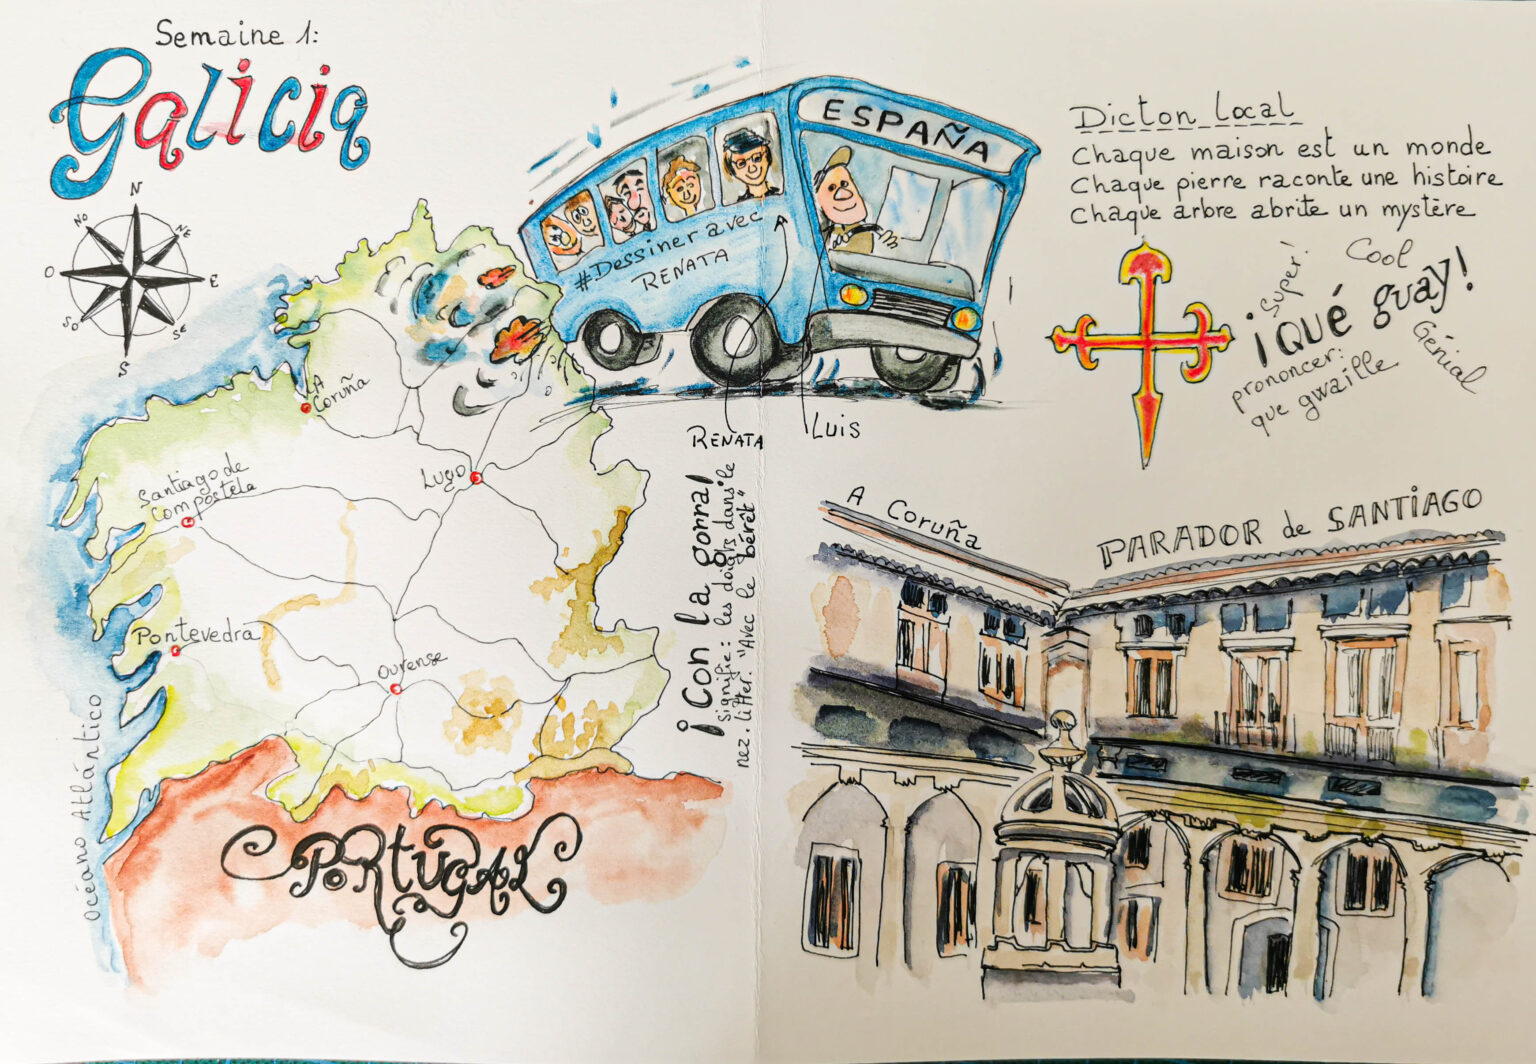 Semaine 1:
Galicia
N
NO
NE
O
E
SO
SE
S
ESPAÑA
#Dessiner avec
RENATA
RENATA
Luis
Dicton local
Chaque maison est un monde
Chaque pierre raconte une histoire
Chaque arbre abrite un mystère
Super!
Cool
¡Qué guay!
Génial
prononcer:
que gwaille
LA
Coruña
Lugo
Santiago de
Compostela
Pontevedra
Ourense
Océano Atlántico
PORTUGAL
¡Con la gorra!
signifie: les doigts dans le
nez. litter. "Avec le béret"
A Coruña
PARADOR de SANTIAGO